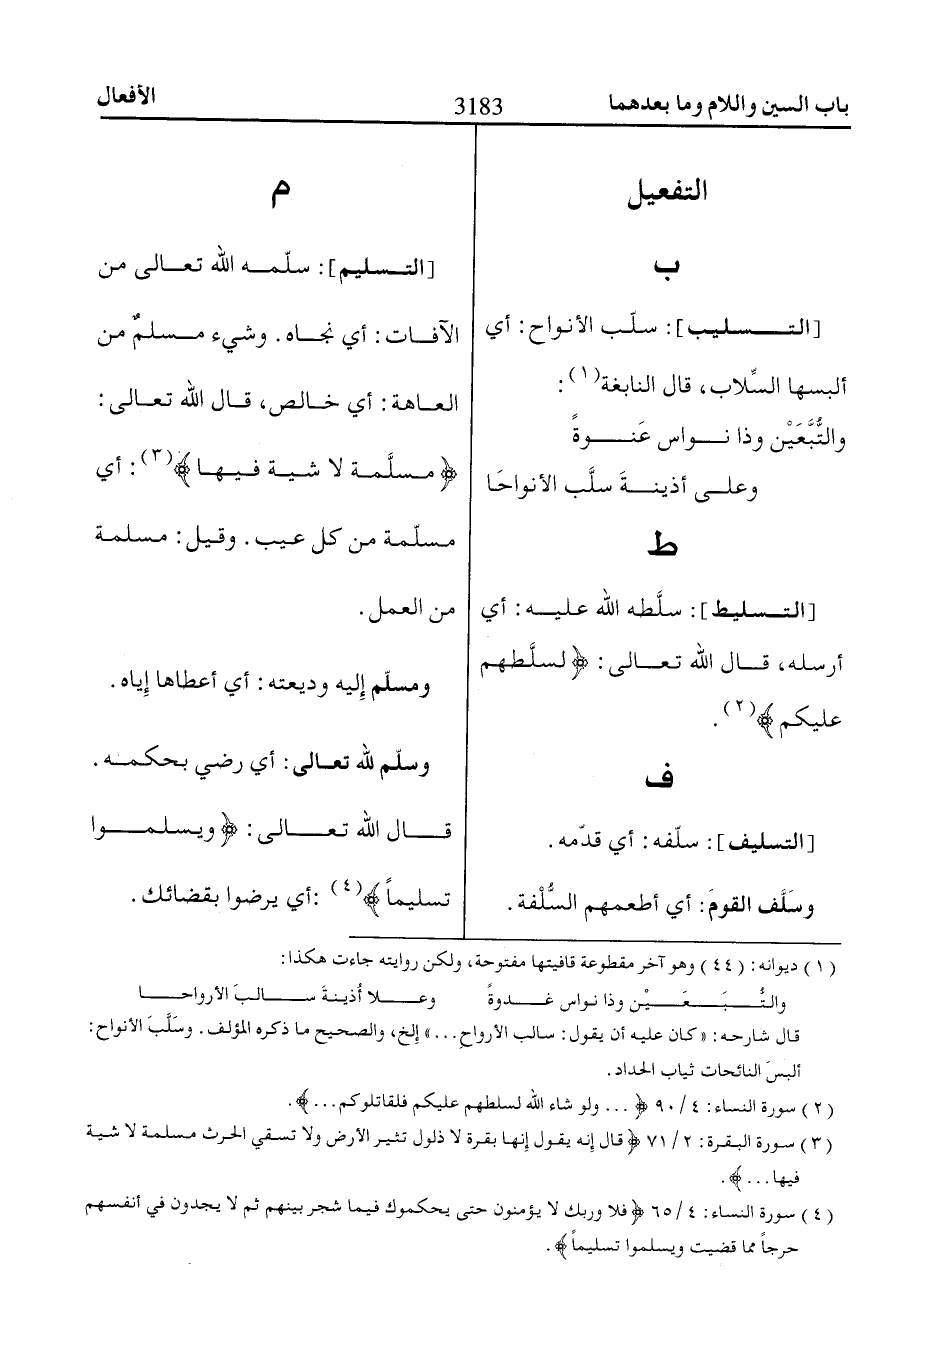 باب السين واللام وما بعدهما 3183 الأفعال
التفعيل
ب
[التـسليب]: سلّب الأنواح: أي
ألبسها السِّلاب، قال النابغة(١):
والتُّبَّعَيْن وذا نواس عَنوةً
وعلى أذينةَ سلَّب الأنواحَا
ط
[التسليط]: سلَّطه الله عليه: أي
أرسله، قال الله تعالى: ﴿لسلَّطهم
عليكم﴾(٢).
ف
[التسليف]: سلّفه: أي قدّمه.
وسَلَّف القومَ: أي أطعمهم السُّلْفة.
م
[التسليم]: سلّمه الله تعالى من
الآفات: أي نجاه. وشيء مسلمٌ من
العاهة: أي خالص، قال الله تعالى:
﴿مسلَّمة لا شية فيها﴾(٣): أي
مسلّمة من كل عيب. وقيل: مسلمة
من العمل.
ومسلّم إليه وديعته: أي أعطاها إياه.
وسلّم لله تعالى: أي رضي بحكمه.
قال الله تعالى: ﴿ويسلموا
تسليماً﴾(٤) :أي يرضوا بقضائك.
(١) ديوانه: (٤٤) وهو آخر مقطوعة قافيتها مفتوحة، ولكن روايته جاءت هكذا:
والتُّبَعَيْن وذا نواس غدوةً وعلا أذينةَ سالبَ الأرواحا
قال شارحه: «كان عليه أن يقول: سالب الأرواحِ...» إلخ، والصحيح ما ذكره المؤلف. وسَلَّبَ الأنواح:
ألبسَ النائحات ثياب الحداد.
(٢) سورة النساء: ٤/ ٩٠ ﴿... ولو شاء الله لسلطهم عليكم فلقاتلوكم...﴾.
(٣) سورة البقرة: ٢/ ٧١ ﴿قال إنه يقول إنها بقرة لا ذلول تثير الأرض ولا تسقي الحرث مسلمة لا شية
فيها...﴾.
(٤) سورة النساء: ٤/ ٦٥ ﴿فلا وربك لا يؤمنون حتى يحكموك فيما شجر بينهم ثم لا يجدون في أنفسهم
حرجاً مما قضيت ويسلموا تسليماً﴾.